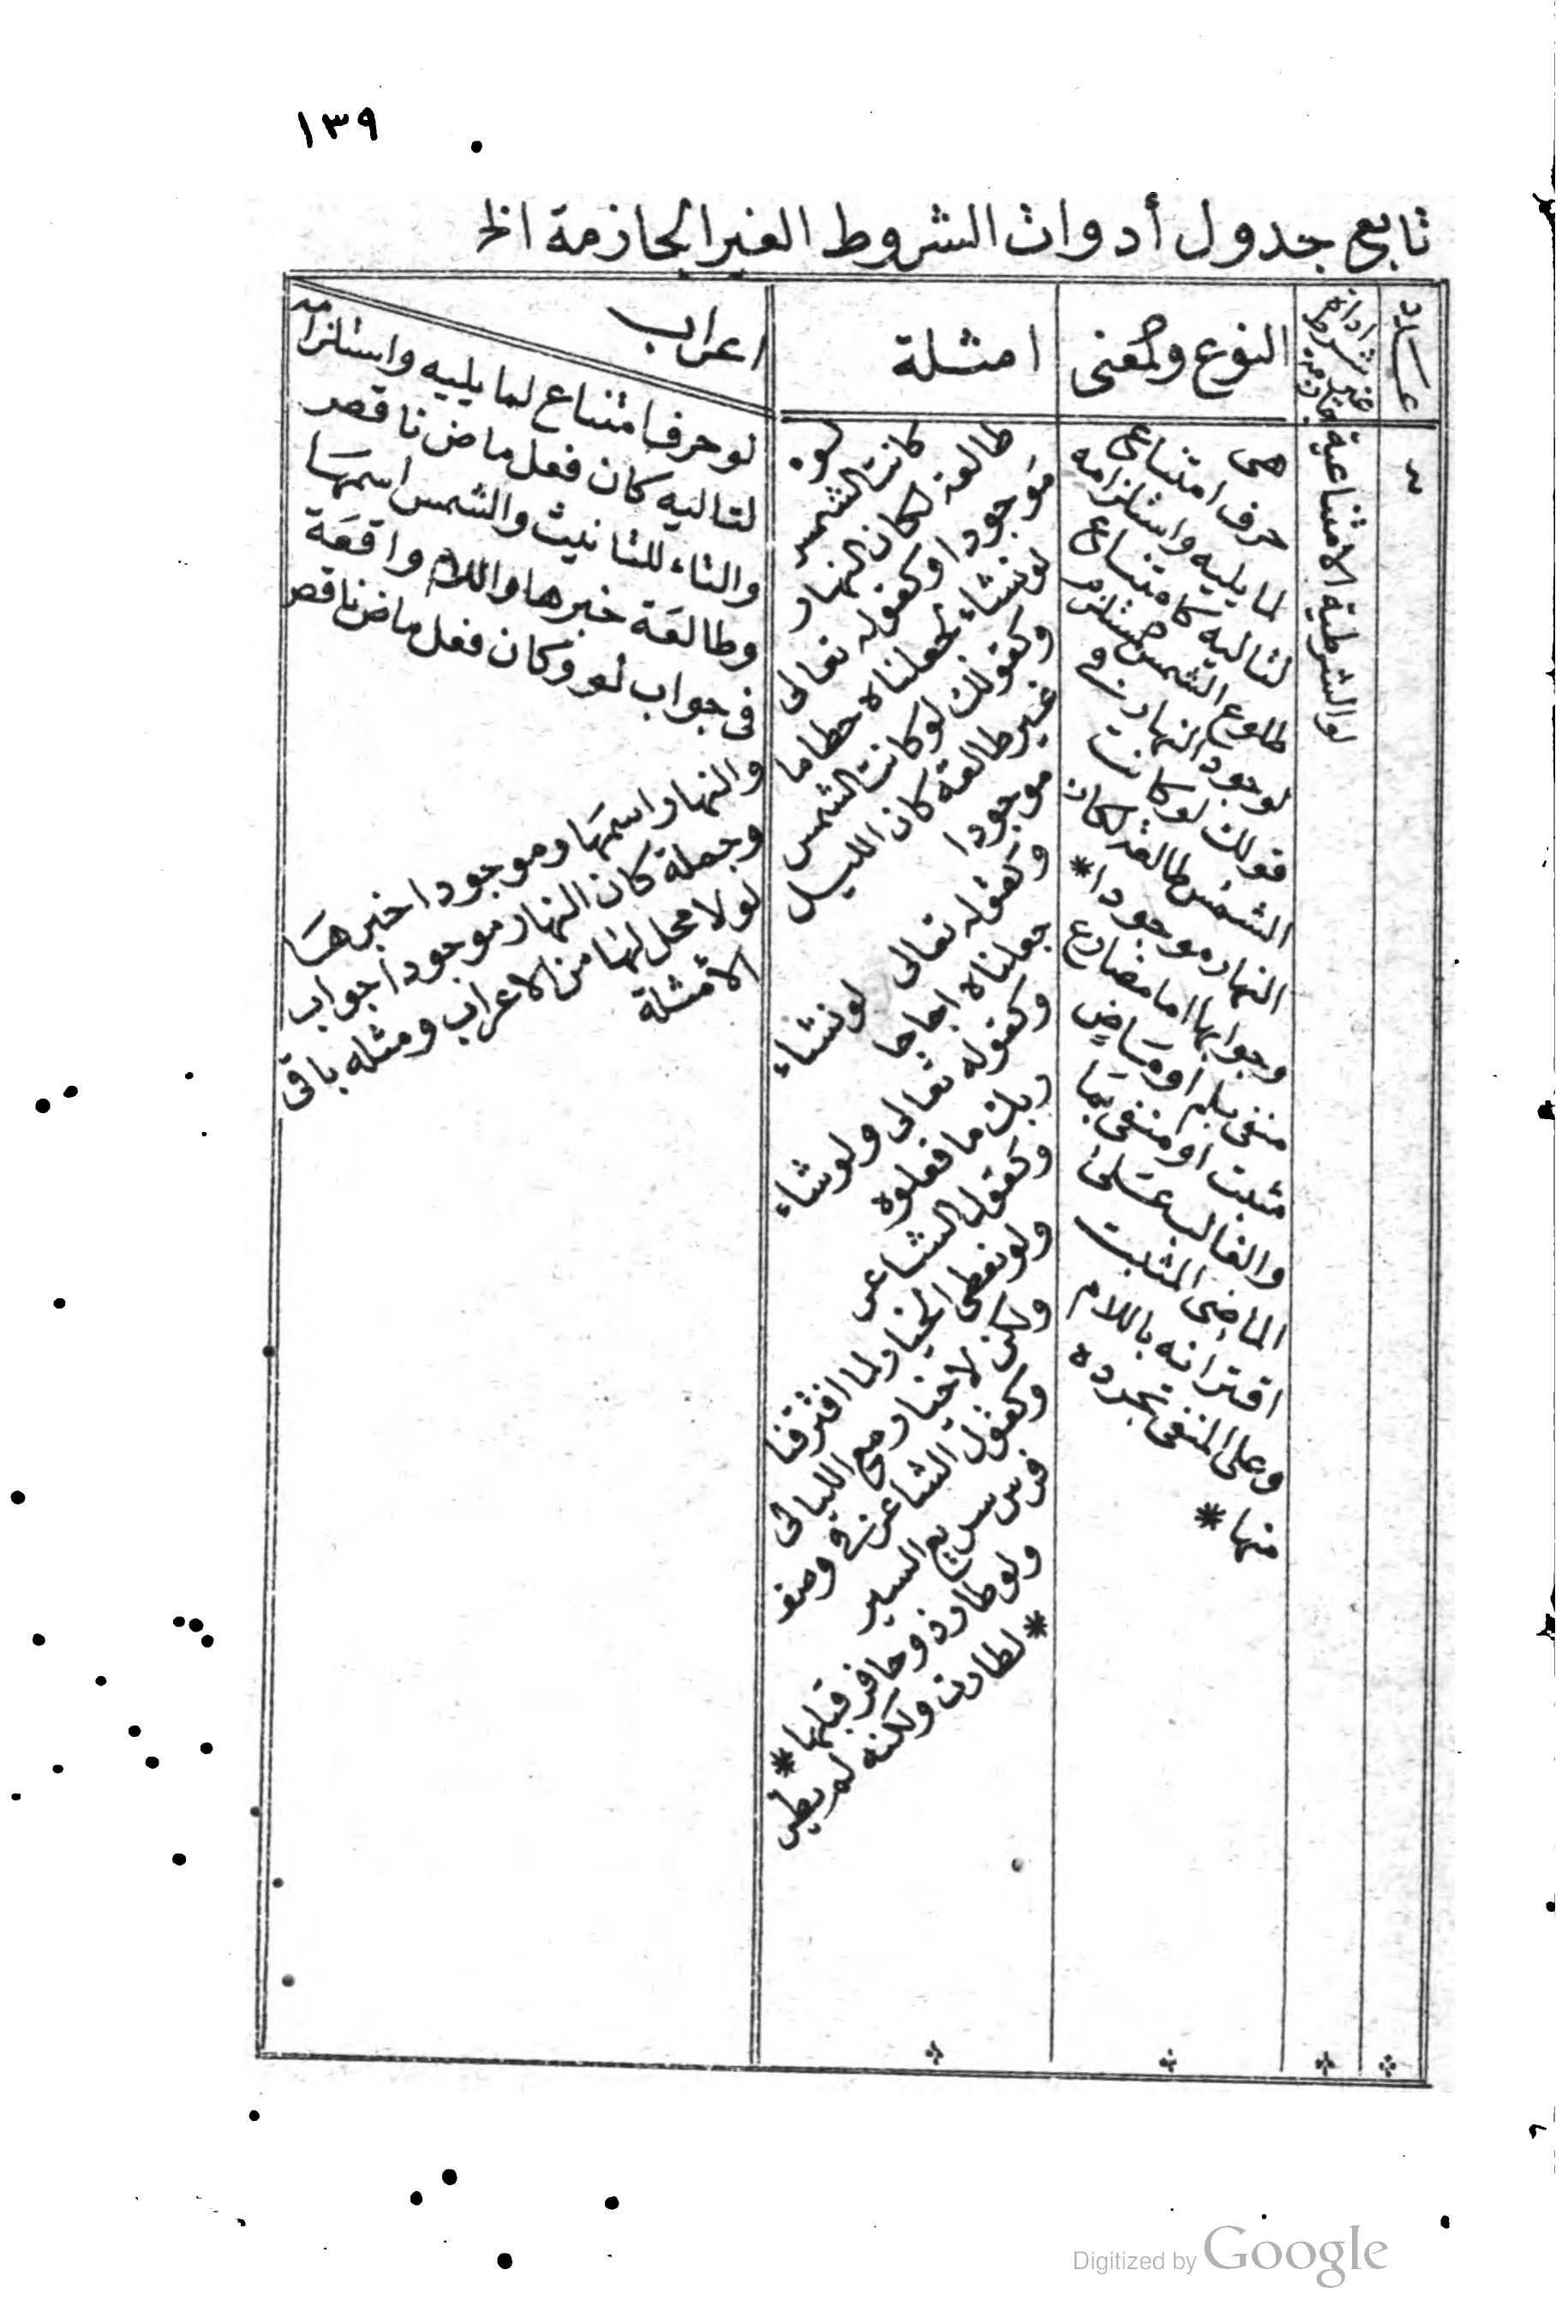 ١٣٩
تابع جدول أدوات الشروط الغير الجازمة الخ
عدد
اداة شرط غير جازمة
النوع والمعنى
امثلة
اعراب
٢
لو الشرطية الامتناعية
هى
حرف امتناعى
لما يليه واستلزامه
لتاليه كامتناع
طلوع الشمس المستلزم
لوجود النهار فى
قولك لو كانت
الشمس طالعة لكان
النهار موجودا *
وجوابها اما مضارع
منفى بلم او ماض
مثبت او منفى بما
والغالب على
الماضى المثبت
اقترانه باللام
وعلى المنفى تجرده
منها *
لو
كانت الشمس
طالعة لكان النهار
موجودا وكقوله تعالى
لو نشاء لجعلناه حطاما
وكقولك لو كانت الشمس
غير طالعة كان الليل
موجودا
وكقوله تعالى لو نشاء
جعلناه اجاجا
وكقوله تعالى ولو شاء
ربك ما فعلوه
وكقول الشاعر
ولو نعطى الخيار لما افترقنا
ولكن لا خيار مع الليالى
وكقول الشاعر فى وصف
فرس سريع السير
ولو طار ذو حافر قبلها *
* لطارت ولكنه لم يطير
لو حرف امتناع لما يليه واستلزامه
لتاليه كان فعل ماض ناقص
والتاء للتانيث والشمس اسمها
وطالعة خبرها واللام واقعة
فى جواب لو وكان فعل ماض ناقص
والنهار اسمها وموجودا خبرها
وجملة كان النهار موجودا جواب
لو لا محل لها من الاعراب ومثله باقى
الامثلة
Digitized by Google